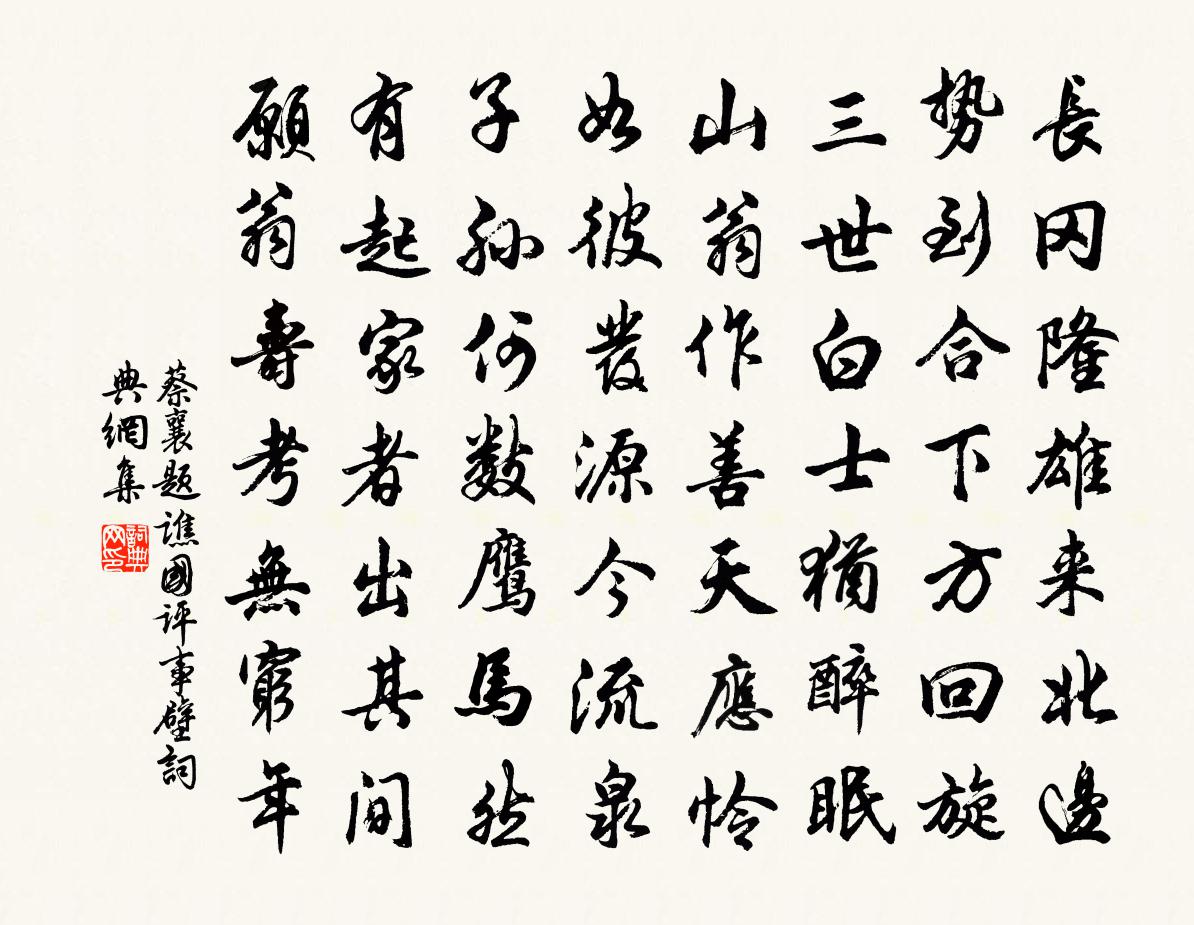 長冈隆雄来北邊
勢到合下方回旋
三世白士猶醉眠
山翁作善天應憐
如彼發源今流泉
子孫何數鷹馬然
有起家者出其間
願翁壽考無窮年
蔡襄题譙國評事壁詞
典網集
詞典网印